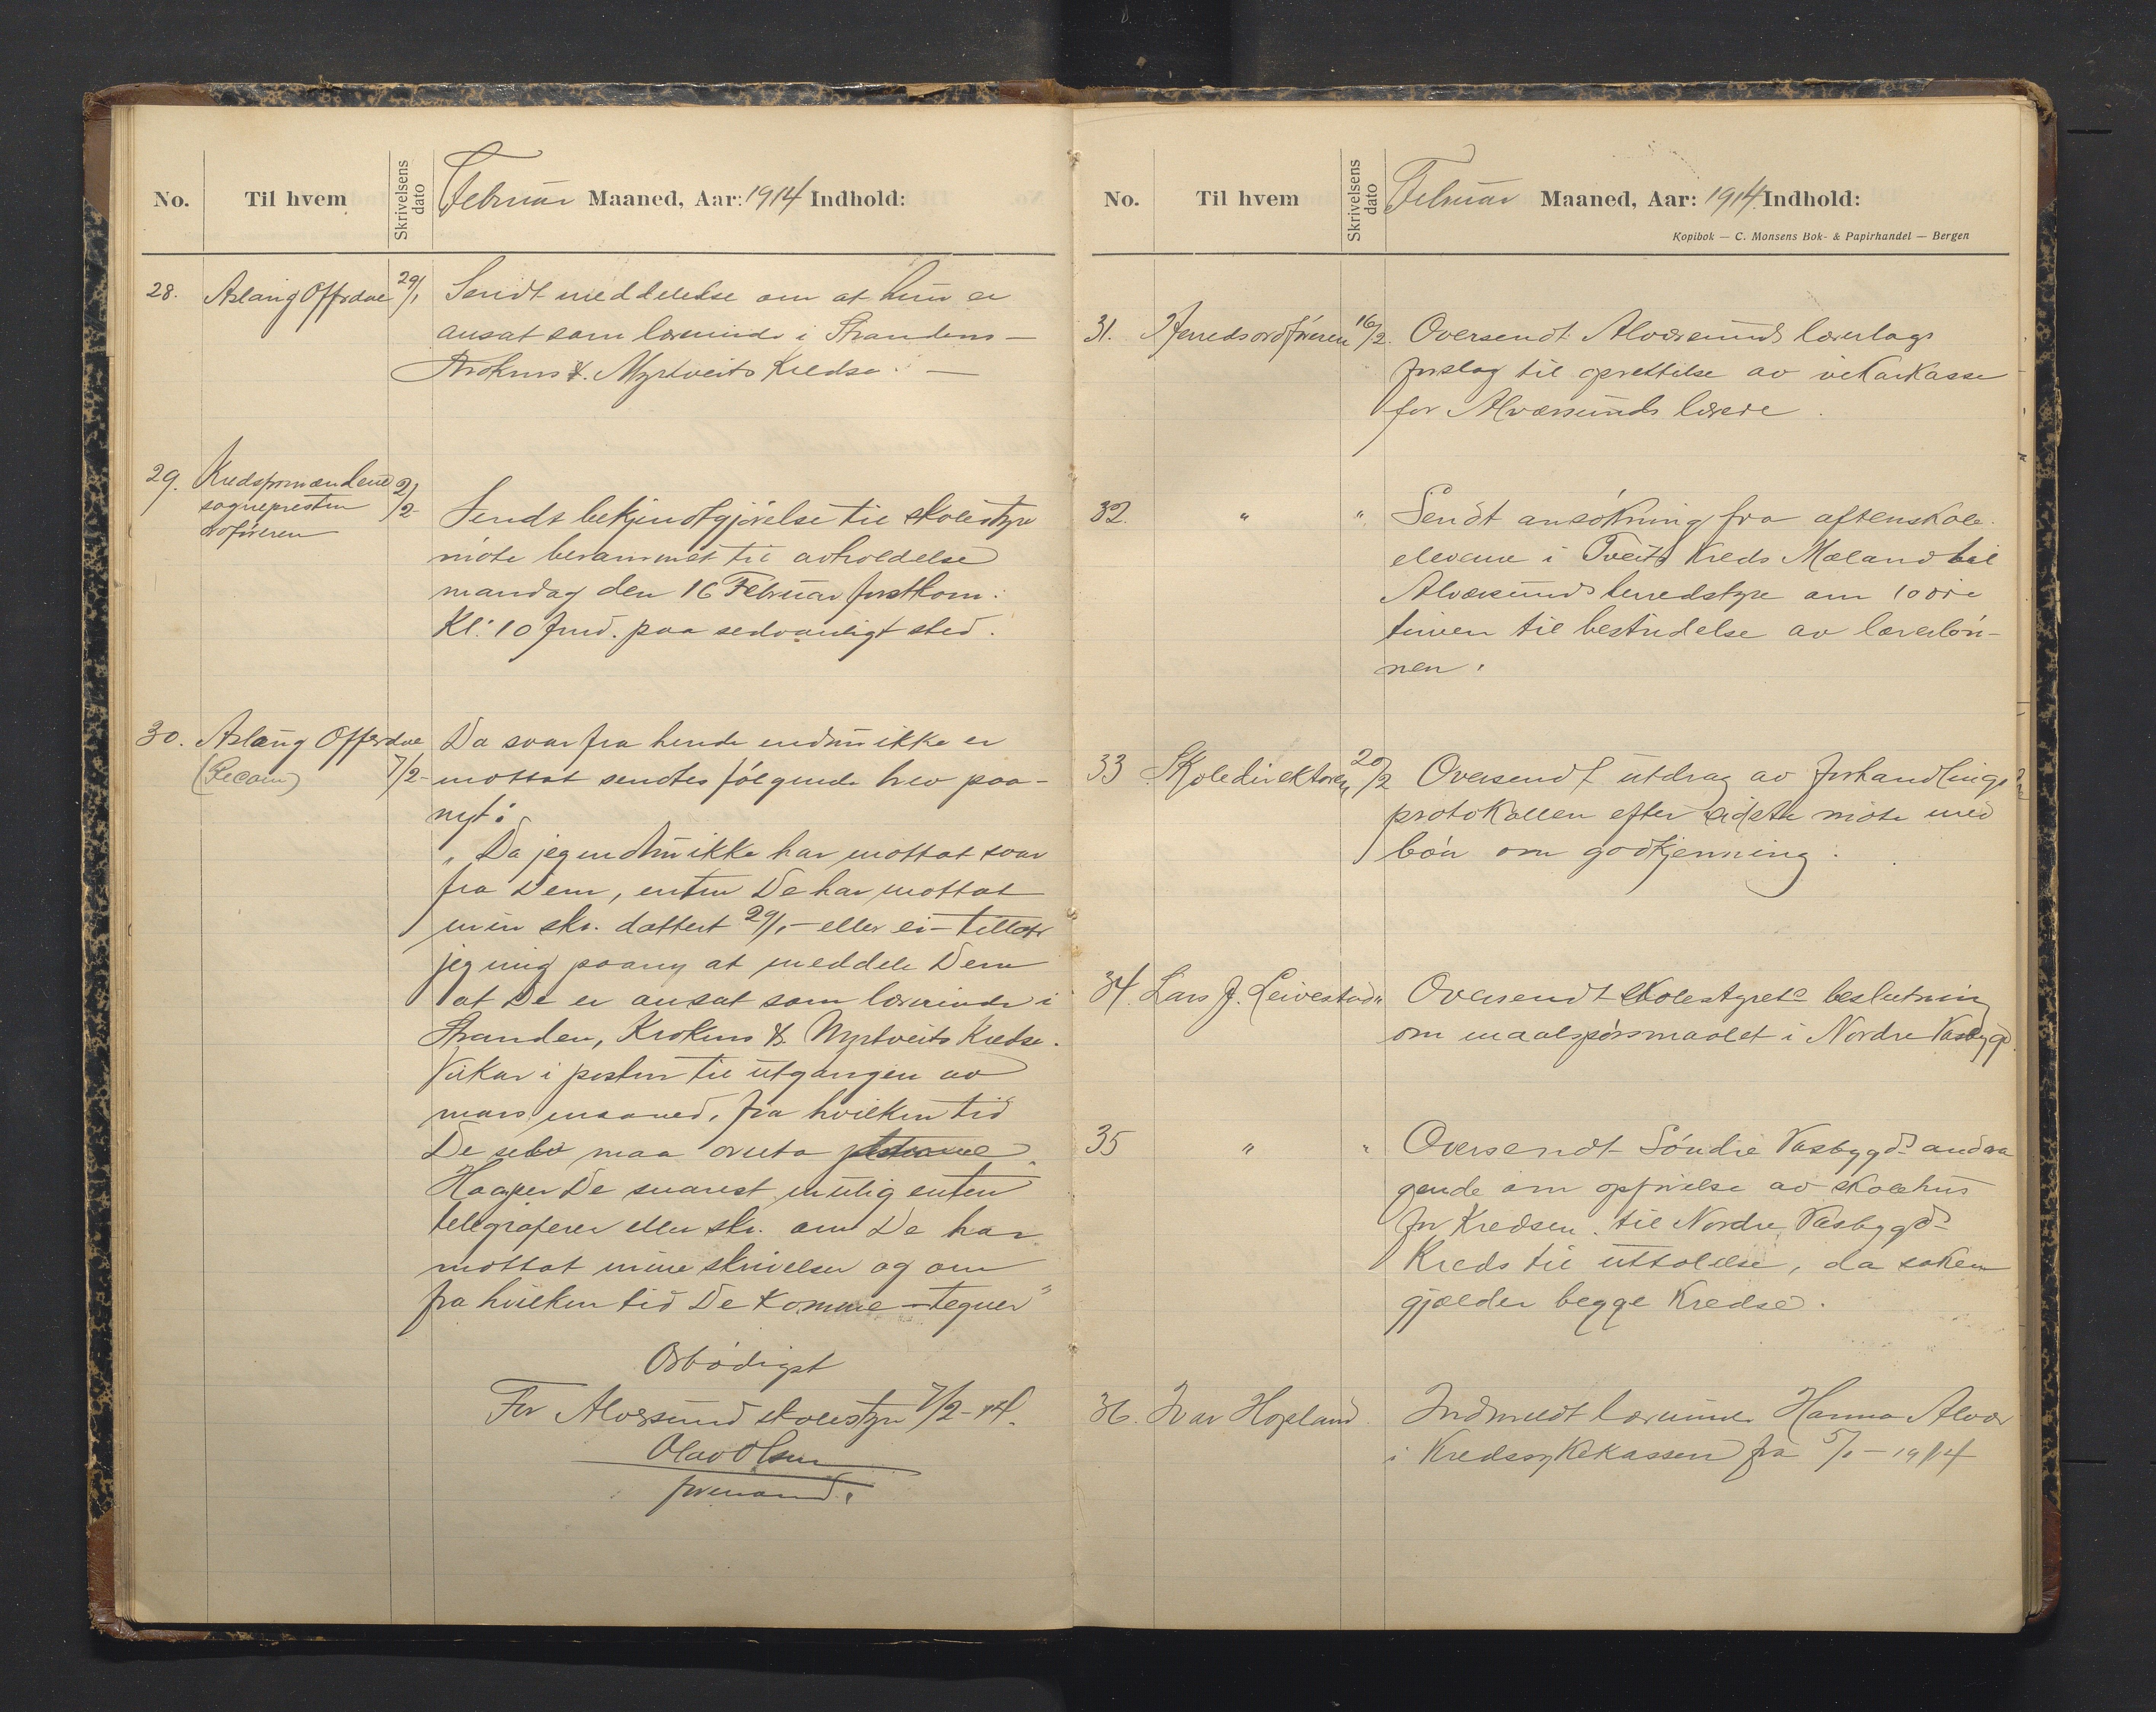 No. Til hvem Skrivelsens dato Februar Maaned, Aar: 1914 Indhold:
28. Aslaug Offerdal 29/1 Sendt meddelelse om at hun er
ansat som lærerinde i Strandens –
Krokens & Myrtveits Kredse. –
29. Kredsformændene 2/2
sognepresten
ordføreren
Sendt bekjendtgjørelse til skolestyre
møte berammet til avholdelse
mandag den 16 Februar førstkom.
Kl. 10 fmd. paa sedvanligt sted.
30. Aslaug Offerdal Da svar fra hende endnu ikke er
7/2 mottat sendtes følgende brev paa-
nyt:
„Da jeg endnu ikke har mottat svar
fra Dem, enten De har mottat
min skr. dattert 29/1 – eller ei – tillater
jeg mig paany at meddele Dem
at De er ansat som lærerinde i
Stranden, Krokens & Myrtveits Kredse.
Vikar i posten til utgangen av
mars maaned, fra hvilken tid
De selv maa overta
Haaper De snarest mulig enten
telegraferer eller skr. om De har
mottat mine skrivelser og om
fra hvilken tid De komme – tegner"
Ærbødigst
For Alversund skolestyre 7/2 – 14.
Olav Olsen
formand.
No. Til hvem Skrivelsens dato Februar Maaned, Aar: 1914 Indhold:
Kopibok — C. Monsens Bok- & Papirhandel — Bergen
31. Herredsordføreren 16/2. Oversendt Alversunds lærerlags
forslag til oprettelse av vikarkasse
for Alversunds lærere.
32. " " Sendt ansøkning fra aftenskole
elevene i Tveits Kreds Mæland til
Alversunds herredstyre om 10 øre
timen til bestridelse av lærerløn-
nen.
33 Skoledirektøren 20/2 Oversendt utdrag av forhandlings
protokollen efter sidste møte med
bøn om godkjenning.
34. Lars J. Leivestad " Oversendt skolestyrets beslutning
om maalspørsmaalet i Nordre Vasbygd.
35 " " Oversendt Søndre Vasbygds andra
gende om opførelse av skolehus
for Kredsen til Nordre Vasbygds
Kreds til uttalelse, da saken
gjælder begge Kredse.
36. Ivar Hopland. Indmeldt lærerinde Hanna Alver
i Kredssykekassen fra 5/1 – 1914